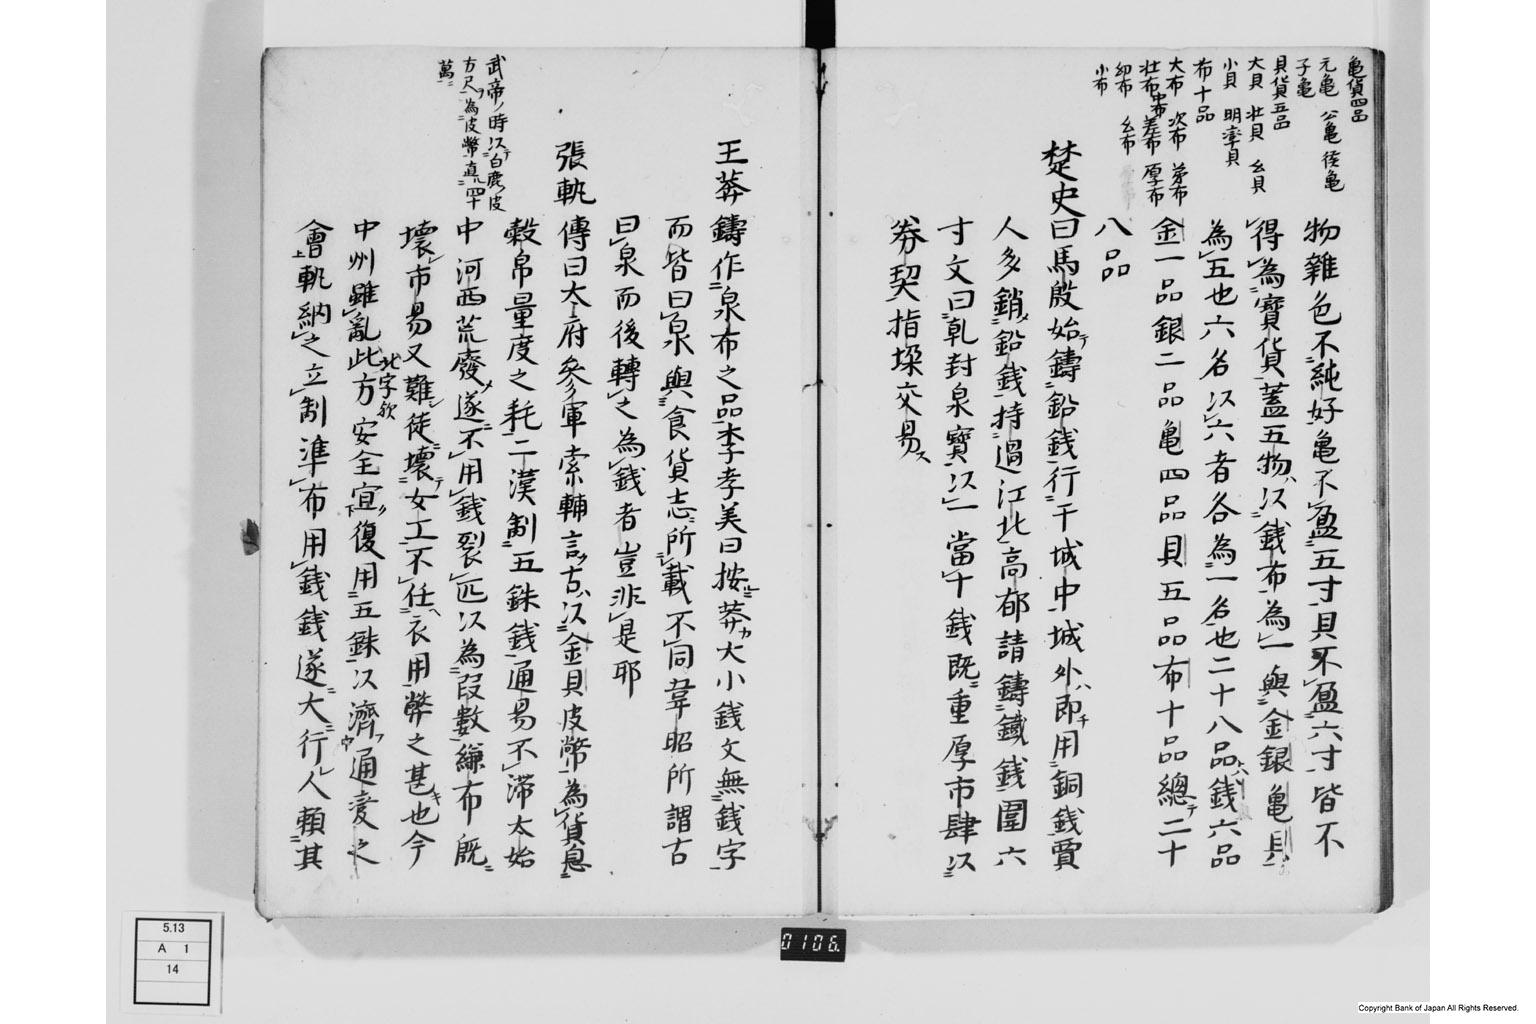 亀貨四品
元亀 公亀 侯亀
子亀
貝貨五品
大貝 壮貝 幺貝
小貝 明率貝
布十品
大布 次布 第布
壮布 中布 差布 厚布
幼布 幺布
小布
物雑色不純好亀不盈五寸貝不盈六寸皆不
得為寶貨蓋五物ハ以銭布為一與金銀亀貝
為五也六名以六者各為一名也二十八品ハ銭六品
金一品銀二品亀四品貝五品布十品總テ二十
八品
楚史曰馬殷始テ鑄鉛銭行于城中城外ハ即チ用銅銭賈
人多銷鉛銭持過江北高郁請鑄鐵銭圍六
寸文曰乹封泉寶以一當十銭既重厚市肆以
券契指垜交易ス
王莽鑄作泉布之品李孝美曰按莽カ大小銭文無銭字
而皆曰泉與食貨志所載不同韋昭所謂古
曰泉而後轉之為銭者豈非是耶
武帝ノ時以テ白鹿皮
方尺ヲ為皮幣直四十
萬
張軌傳曰太府參軍索輔言古ハ以金貝皮幣為貨息
穀帛量度之耗二漢制五銖銭通易不滞太始
中河西荒廢メ遂不用銭裂匹以為段數縑布既
壊市易又難シ徒壊テ女工不任ヘ衣用弊之甚キ也今
中州雖亂此方安全宜ク復用五銖以濟フ通変之
此字欤
會軌納之立制準布用銭銭遂大行人頼其
5.13
A 1
14
0106
Copyright Bank of Japan All Rights Reserved.